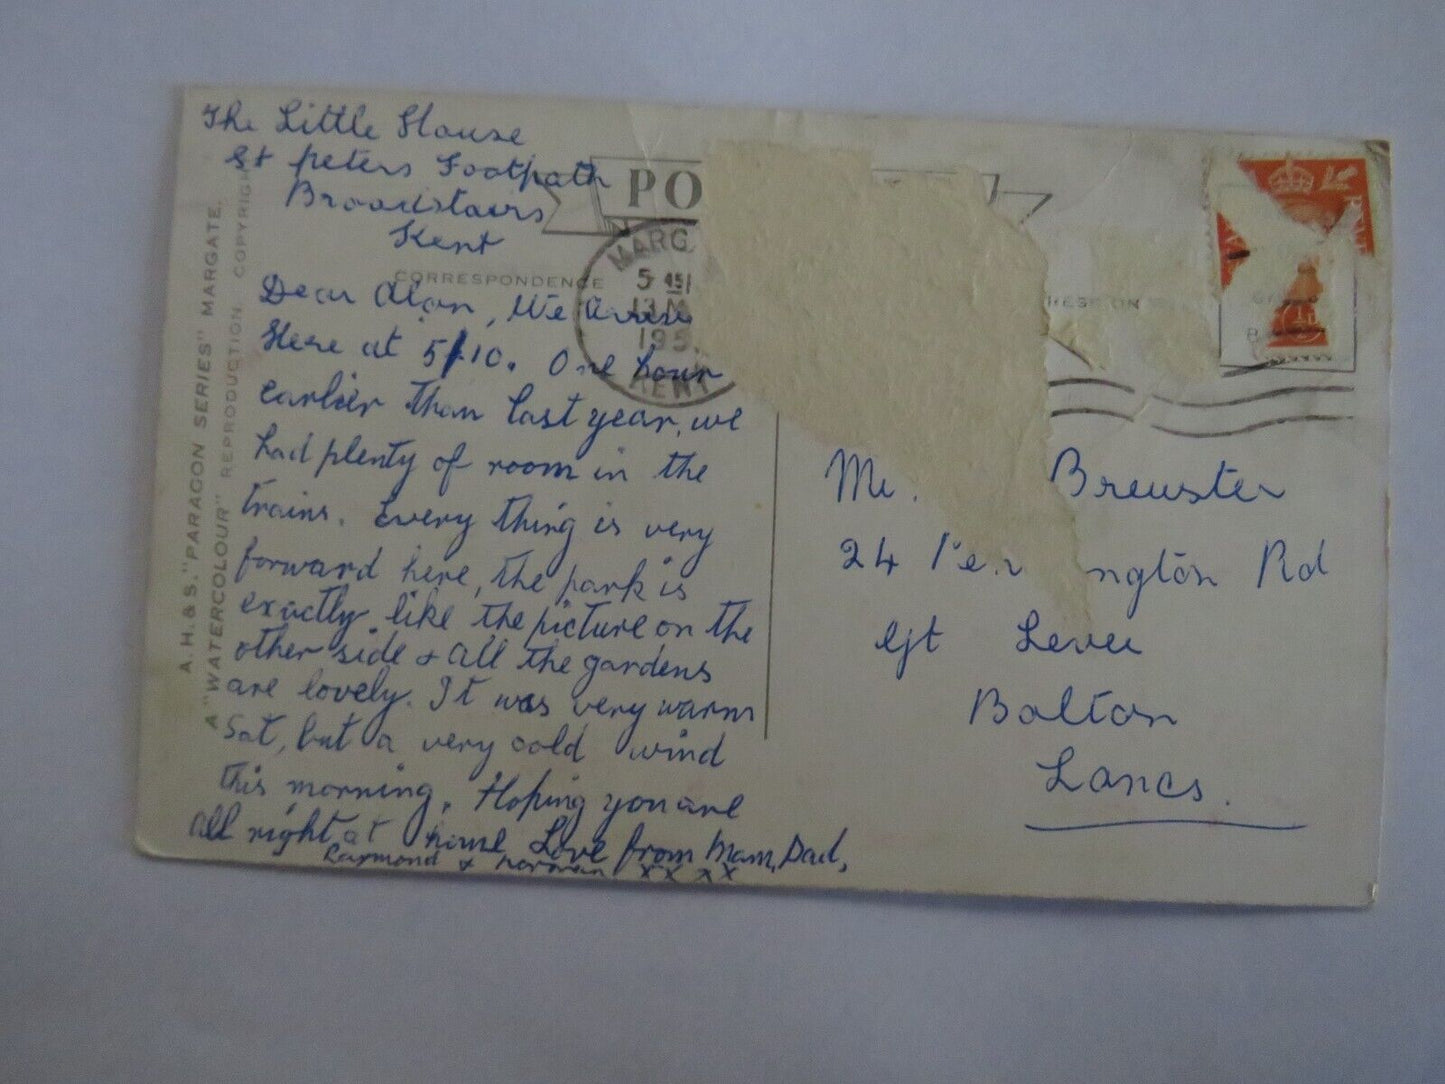 The Little House
St Peters Footpath
Broadstairs
Kent
PO
CORRESPONDENCE
MARG
5 45
13 M
195
KENT
Dear Alan, We arrive
Here at 5/10. One hour
earlier than last year, we
had plenty of room in the
trains. Every thing is very
forward here, the park is
exactly like the picture on the
other side & all the gardens
are lovely. It was very warm
Sat, but a very cold wind
this morning. Hoping you are
all right at home Love from Mam, Dad,
Raymond & Norman xx xx
A. H. & S. "PARAGON SERIES" MARGATE.
A "WATERCOLOUR" REPRODUCTION. COPYRIGH
RESS ON
Mr. Brewster
24 ngton Rd
Gt Lever
Bolton
Lancs.